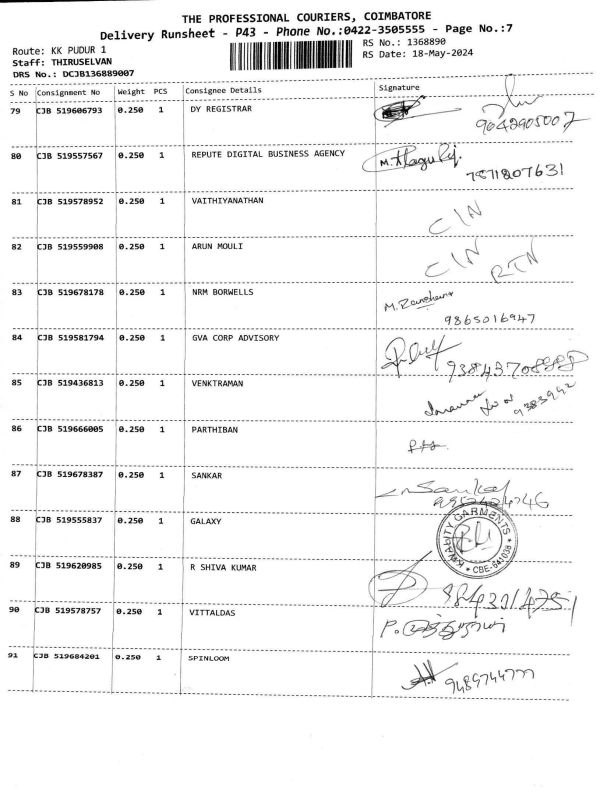 THE PROFESSIONAL COURIERS, COIMBATORE
Delivery Runsheet - P43 - Phone No.:0422-3505555 - Page No.:7
Route: KK PUDUR 1
RS No.: 1368890
Staff: THIRUSELVAN
RS Date: 18-May-2024
DRS No.: DCJB136889007
S No Consignment No Weight PCS Consignee Details Signature
79 CJB 519606793 0.250 1 DY REGISTRAR
9042905007
80 CJB 519557567 0.250 1 REPUTE DIGITAL BUSINESS AGENCY
7871807631
81 CJB 519578952 0.250 1 VAITHIYANATHAN
CIN
82 CJB 519559908 0.250 1 ARUN MOULI
CIN RTN
83 CJB 519678178 0.250 1 NRM BORWELLS
9865016947
84 CJB 519581794 0.250 1 GVA CORP ADVISORY
85 CJB 519436813 0.250 1 VENKTRAMAN
9383942
86 CJB 519666005 0.250 1 PARTHIBAN
87 CJB 519678387 0.250 1 SANKAR
88 CJB 519555837 0.250 1 GALAXY
GARMENTS
CBE-641038
89 CJB 519620985 0.250 1 R SHIVA KUMAR
90 CJB 519578757 0.250 1 VITTALDAS
91 CJB 519684201 0.250 1 SPINLOOM
9489744777